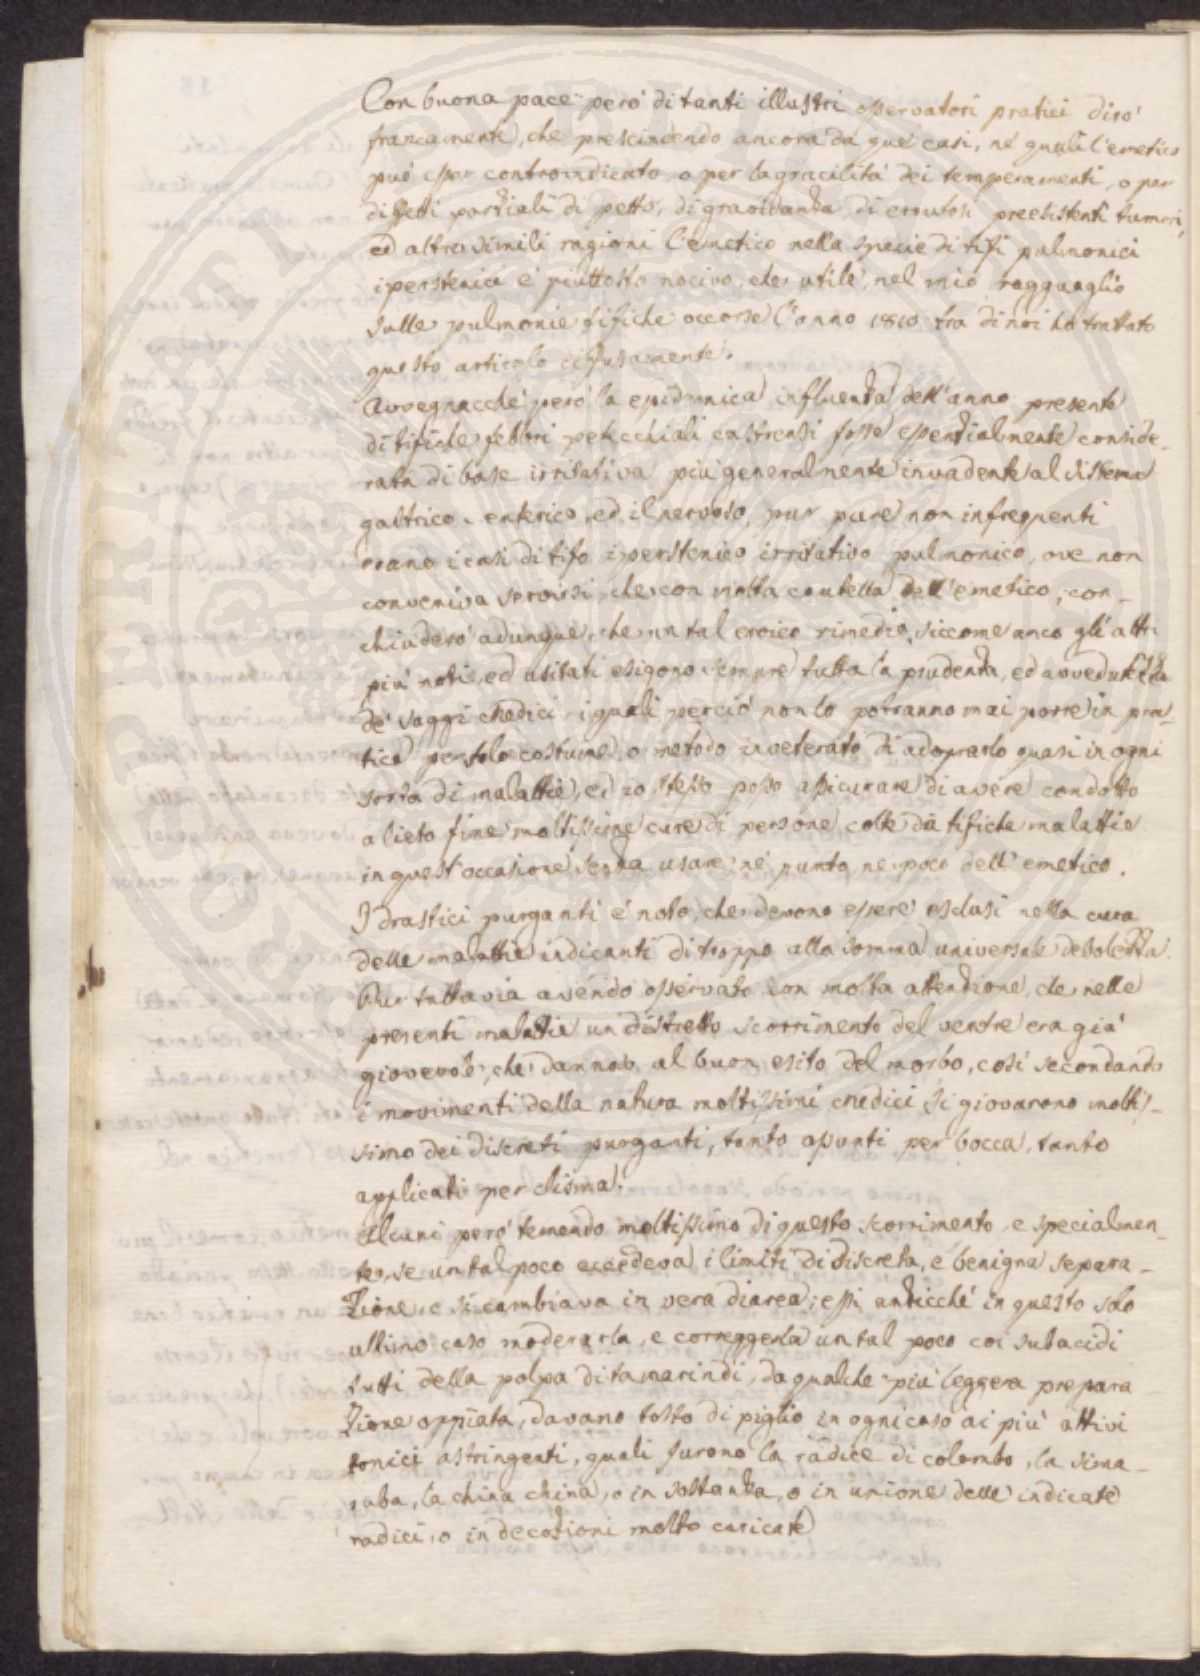 Con buona pace però di tanti illustri osservatori pratici dirò
francamente, che prescindendo ancora da que' casi, ne' quali l'emetico
può esser controindicato, o per la gracilità dei temperamenti, o per
diffetti parziali di petto, di gravidanza, di preesistenti tumori,
ed altre simili ragioni l'emetico nella specie di tifi pulmonici
iperstenici è piuttosto nocivo, che utile, nel mio ragguaglio
sulle pulmonie tifiche occorse l'anno 1810 tra di noi ho trattato
questo articolo diffusamente.
Avvegnacché però la epidemica influenza dell'anno presente
di tifiche febbri petecchiali castrensi fosse essenzialmente conside-
rata di base irritativa più generalmente invadente al sistema
gastrico-enterico, ed il nervoso, pur pure non infrequenti
erano i casi di tifo iperstenico irritativo pulmonico, ove non
conveniva servirsi, che con molta cautella dell'emetico; con-
chiuderò adunque, che un tal eroico rimedio, siccome anco gli altri
più noti, ed usitati esigono sempre tutta la prudenza, ed avvedutezza
de' saggi Medici, i quali perciò non lo porranno mai porre in pra-
tica per solo costume, o metodo inveterato di adoprarlo quasi in ogni
sorta di malattie, ed io stesso posso assicurare di avere condotto
a lieto fine moltissime cure di persone colte da tifiche malattie
in quest'occasione senza usare, né punto, né poco dell'emetico.
I drastici purganti è noto, che devono essere esclusi nella cura
delle malattie indicanti di troppo alla somma universale debolezza.
Pur tuttavia avendo osservato con molta attenzione, che nelle
presenti malattie un discretto scorrimento del ventre era già
giovevole, che dannoso al buon esito del morbo, così secondando
i movimenti della natura moltissimi Medici si giovarono moltis-
simo dei discreti purganti, tanto assunti per bocca, tanto
applicati per clisma.
Alcuni però temendo moltissimo di questo scorrimento e specialmen-
te, se un tal poco eccedeva i limiti di discreta, e benigna separa-
zione, e si cambiava in vera diarea; essi anzicché in questo solo
ultimo caso moderarla, e correggerla un tal poco coi subacidi
frutti della polpa di tamarindi, da qualche più leggera prepara-
zione oppiata, davano tosto di piglio in ogni caso ai più attivi
tonici astringenti, quali furono la radice di colombo, la sima-
ruba, la china china, o in sostanza, o in unione delle indicate
radici, o in decozioni molto caricate